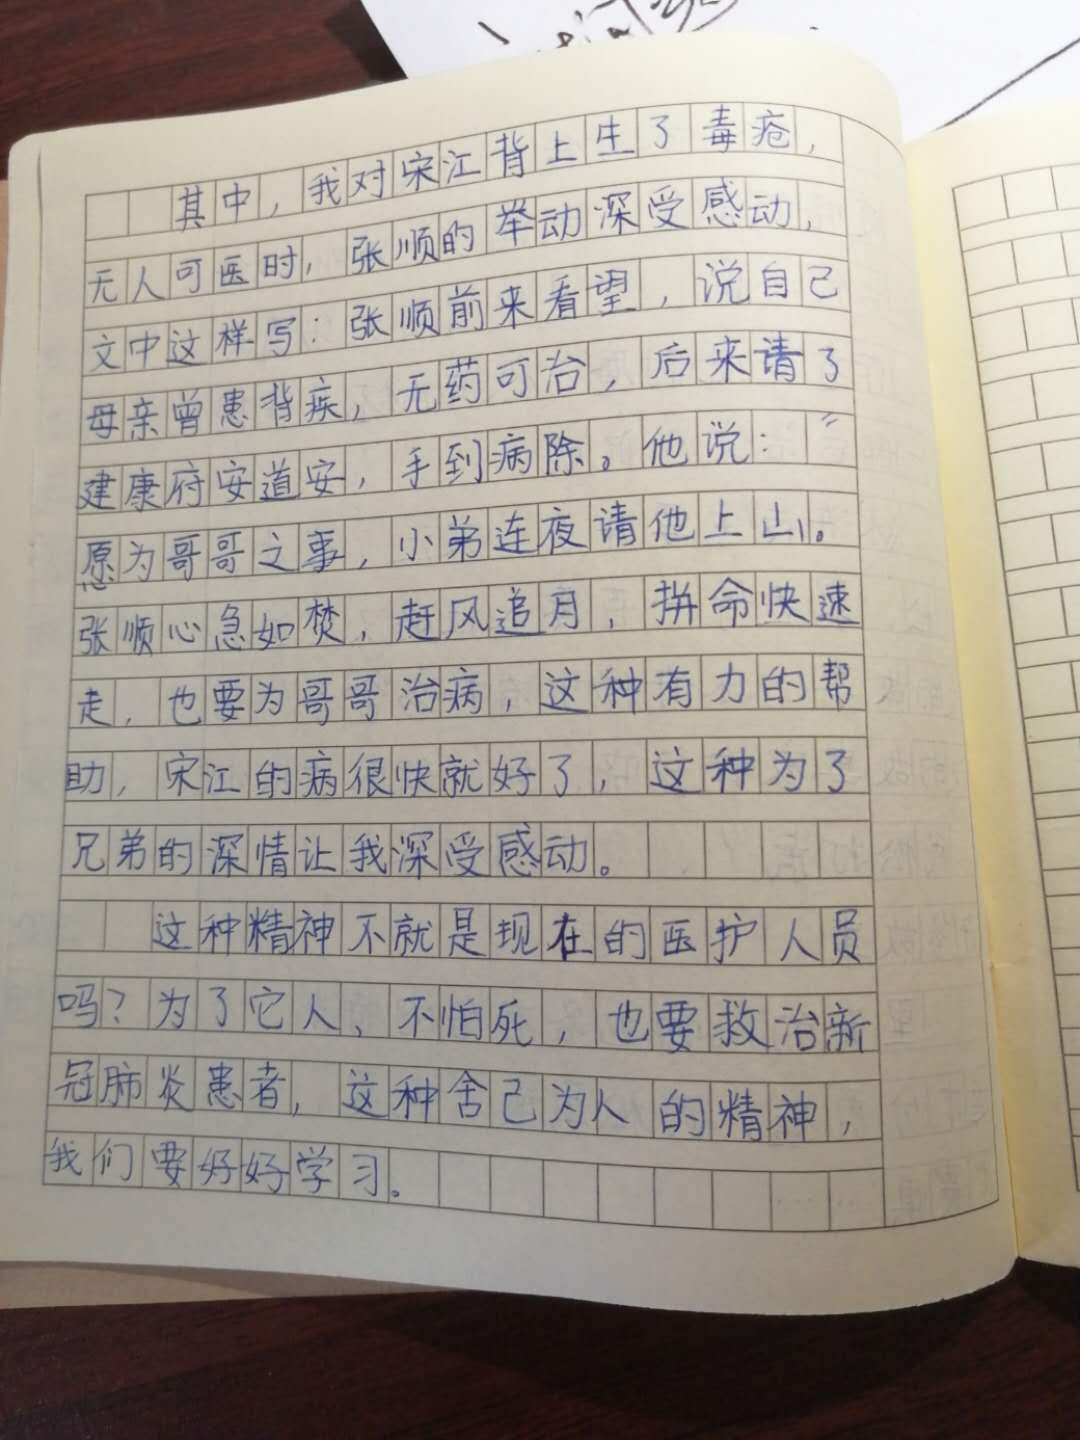 其中，我对宋江背上生了毒疮，
无人可医时，张顺的举动深受感动，
文中这样写：张顺前来看望，说自己
母亲曾患背疾，无药可治，后来请了
建康府安道安，手到病除。他说：“
愿为哥哥之事，小弟连夜请他上山。
张顺心急如焚，赶风追月，拼命快速
走，也要为哥哥治病，这种有力的帮
助，宋江的病很快就好了，这种为了
兄弟的深情让我深受感动。
这种精神不就是现在的医护人员
吗？为了它人、不怕死，也要救治新
冠肺炎患者，这种舍己为人的精神，
我们要好好学习。